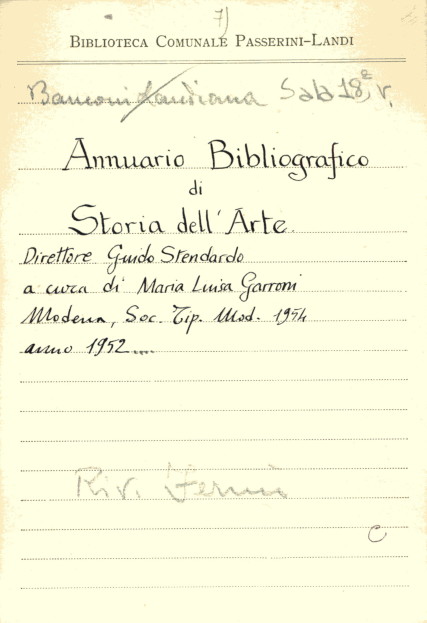 7)
BIBLIOTECA COMUNALE PASSERINI-LANDI
Landiana Sala 18ª, v.
Annuario Bibliografico
di
Storia dell'Arte.
Direttore Guido Stendardo
a cura di Maria Luisa Garroni
Modena, Soc. Tip. Mod. 1954
anno 1952....
Riv.
C